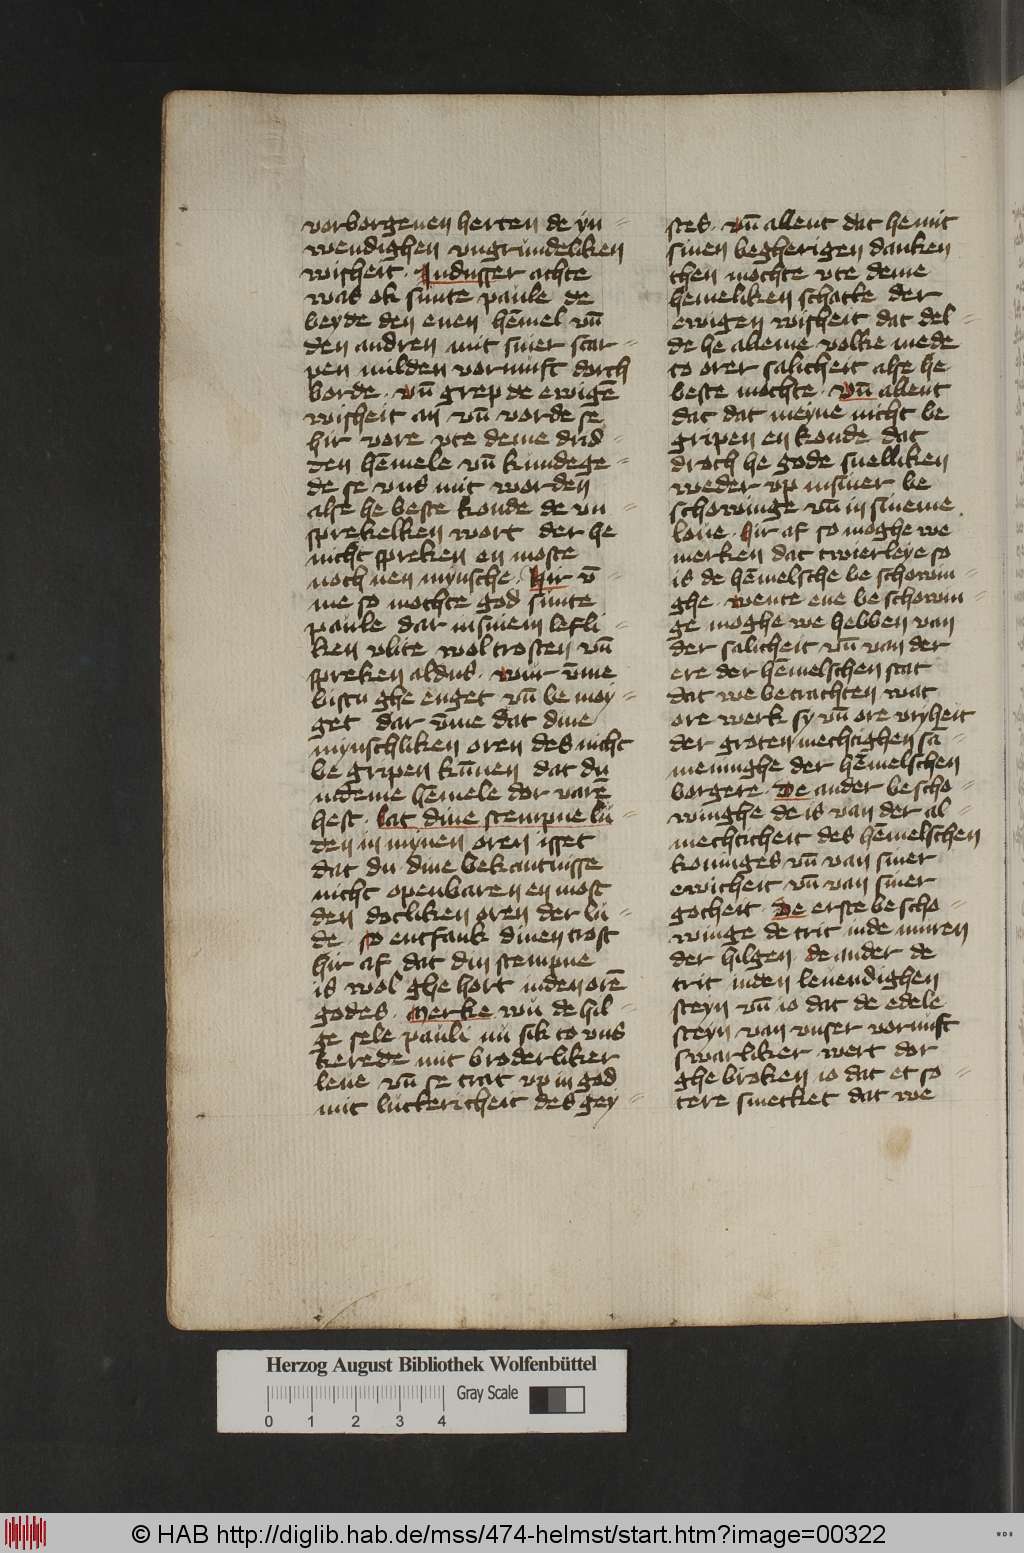 vorborgenen herten de yn=
wendighen vngrundeliken
wisheit. Indusser achte
was ok sunte paule de
beyde den enen hēmel vn̄
den andren mit siner scar=
pen milden vornunft dorch
borde. vn̄ grep de ewigē
wisheit an vn̄ vorde se
hir vore vte deme drid=
den hēmele vn̄ kundege=
de se vns mit worden
alse he beste konde de vn=
sprekelken wort der he
nicht spreken en moste
noch nen mynsche. Hir v̄=
me so mochte god sunte
paule dar insinem lefli=
ken vlite wol trosten vn̄
spreken aldus. wur v̄me
bistu ghe enget vn̄ be moy=
get dar v̄me dat dine
mynschliken oren des nicht
be gripen kūnen dat du
indeme hēmele dor varē
hest. lat dine stempne lu=
den in mynen oren isset
dat du dine bekantnisse
nicht openbaren en most
den dotliken oren der lu=
de. so entfank dinen trost
hir af dat din stempne
is wol ghe hort inden orē
godes. Merke wu de hil=
ge sele pauli nu sik to vns
kerede mit broderliker
leue vn̄ se trat vp in god
mit luckericheit des gey=
stes. vn̄ allent dat he mit
sinen begherigen danken
then mochte vte deme
hemeliken schatte der
ewigen wisheit dat del=
de he alleme volke mede
to orer salicheit alse he
beste mochte. vn̄ allent
dat dat meyne nicht be
gripen en konde dat
droch he gode snelliken
weder vp insiner be
schowinge vn̄ in sineme
loue. hir af so moghe we
merken dat twierleye so
is de hēmelsche be schowin=
ghe. wente ene be schowin=
ge moghe we hebben van
der salicheit vn̄ van der
ere der hēmelschen stat
dat we betrachten wat
ore werk sy vn̄ ore vryheit
der groten mechtighen sā=
meninghe der hēmelschen
borgere. De ander bescho=
winghe de is van der al=
mechticheit des hēmelschen
koninges vn̄ van siner
ewicheit vn̄ van siner
gotheit. De erste bescho=
winge de trit inde muren
der hilgen. de ander de
trit inden leuendighen
steyn vn̄ io dat de edele
steyn van vnser vornuft
swarliker wert dor
ghe broken io dat et so=
tere smecket dat we
Herzog August Bibliothek Wolfenbüttel
Gray Scale
0 1 2 3 4
© HAB http://diglib.hab.de/mss/474-helmst/start.htm?image=00322